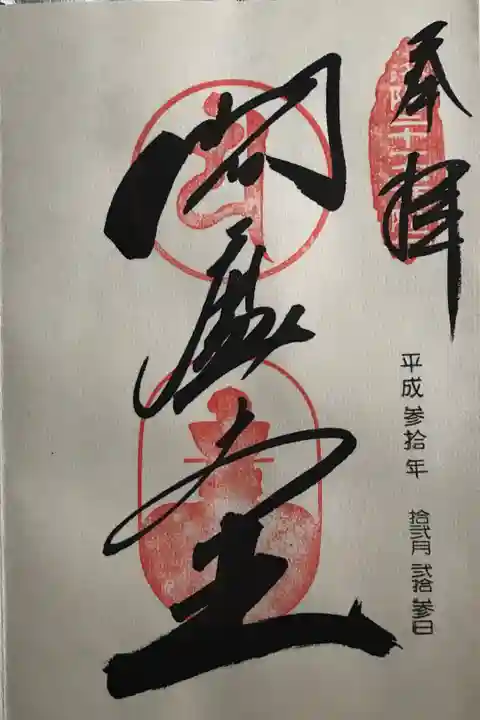 奉拝
平成参拾年 拾弐月弐拾参日
閻魔大王